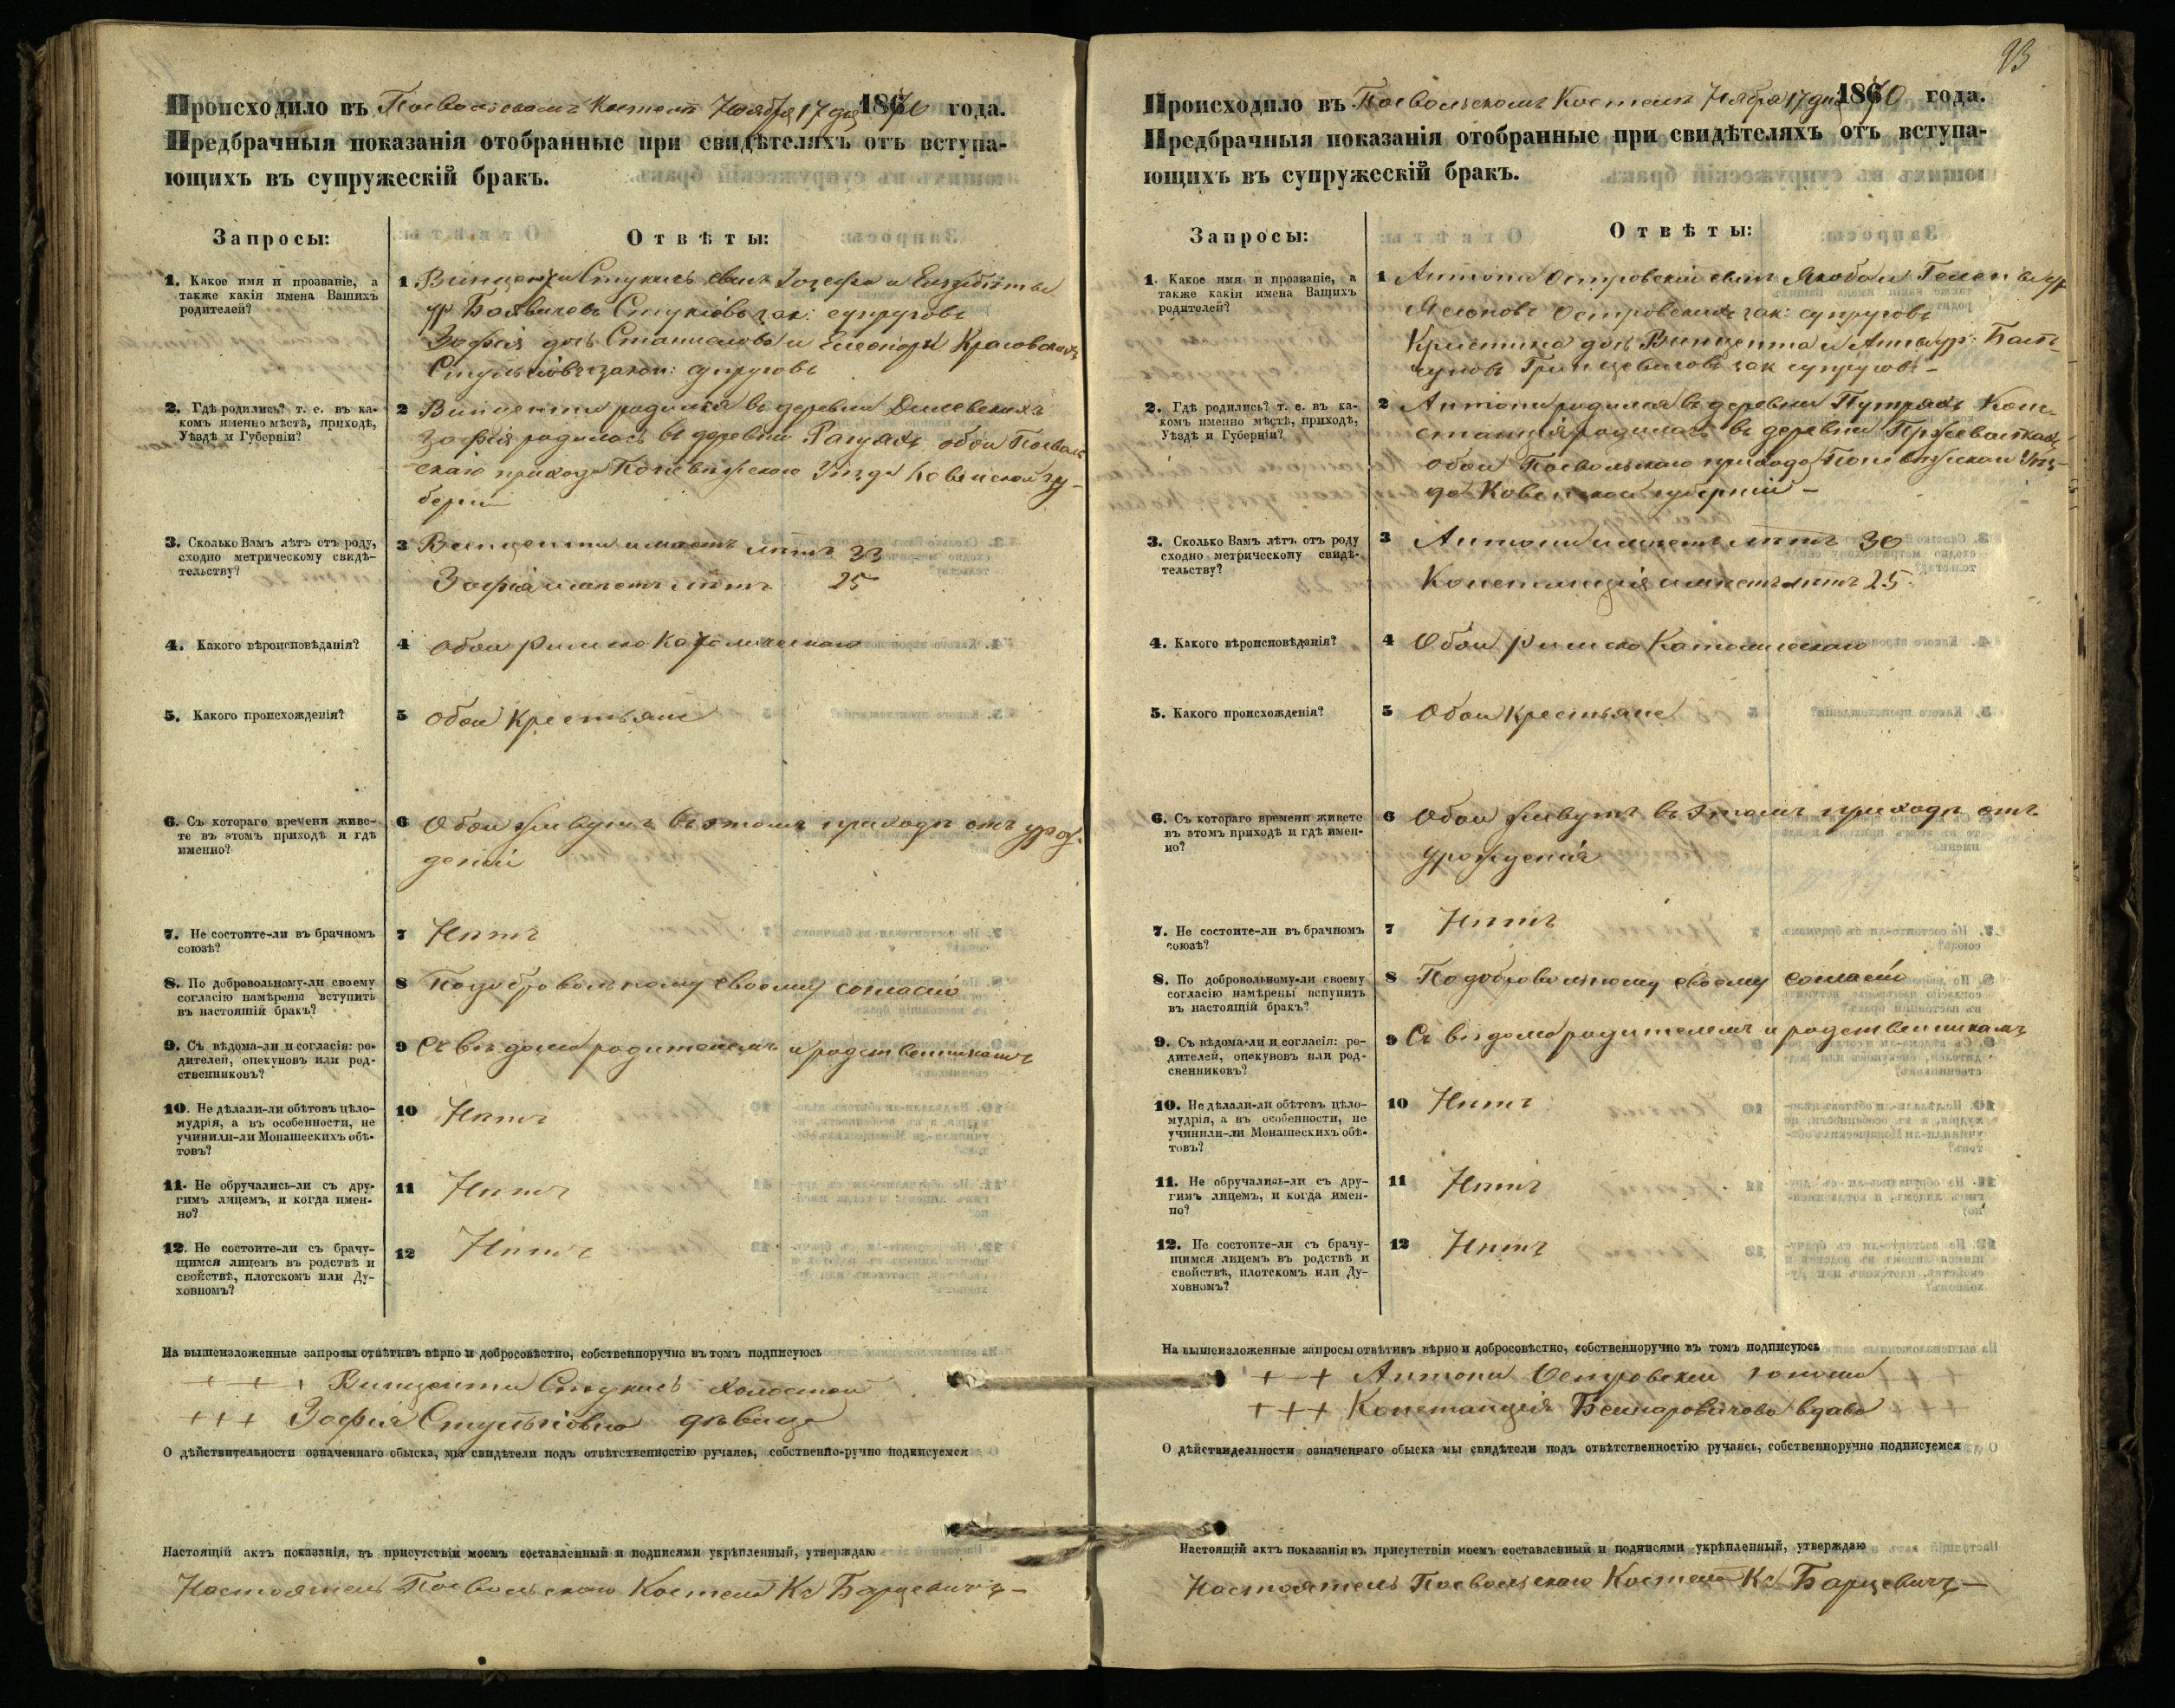 Происходило въ Поевольскомъ Костелѣ Ноября 17 дня 1870 года.
Предбрачныя показанія отобранные при свидѣтеляхъ отъ вступа-
ющихъ въ супружескій бракъ.
Запросы:
Отвѣты:
1. Какое имя и прозваніе, а
также какія имена Вашихъ
родителей?
1 Винценти Стукисъ сынъ Іозефа и Елзубѣты
ур Стуковъ зак: супруговъ
Зофія дочь Станислова и Елеоноры
закон: супруговъ
2. Гдѣ родились? т. е. въ ка-
комъ именно мѣстѣ, приходѣ,
Уѣздѣ и Губерніи?
2 Винценти родился въ деревни
Зофія родилась въ деревни Рагуяхъ обои Поеволь
скаго прихода Поневѣжскаго Уѣзда Ковенской гу-
берни
3. Сколько Вамъ лѣтъ отъ роду,
сходно метрическому свидѣ-
тельству?
3 Винценти имѣетъ лѣтъ 33
Зофія имѣетъ лѣтъ 25
4. Какого вѣроисповѣданія?
4 Обои Римско Католическаго
5. Какого происхожденія?
5 Обои Крестьяне
6. Съ котораго времени живе-
те въ этомъ приходѣ и гдѣ
именно?
6 Обои живутъ въ этомъ приходѣ отъ урож-
деніи
7. Не состоите-ли въ брачномъ
союзѣ?
7 Нѣтъ
8. По добровольному-ли своему
согласію намѣрены вступить
въ настоящій бракъ?
8 По добровольному своему согласію
9. Съ вѣдома-ли и согласія: ро-
дителей, опекуновъ или род-
ственниковъ?
9 Съ вѣдома родителемъ и родственникамъ
10. Не дѣлали-ли обѣтовъ цѣло-
мудрія, а въ особенности, не
учинили-ли Монашескихъ обѣ-
товъ?
10 Нѣтъ
11. Не обручались-ли съ дру-
гимъ лицемъ, и когда имен-
но?
11 Нѣтъ
12. Не состоите-ли съ брачу-
щимся лицемъ въ родствѣ и
свойствѣ, плотскомъ или Ду-
ховномъ?
12 Нѣтъ
На вышеизложенные запросы отвѣтивъ вѣрно и добросовѣстно, собственоручно въ томъ подписуюсь
+ + + Винценти Стукисъ холостой
+++ Зофія дѣвица
О дѣйствительности означеннаго обыска, мы свидѣтели подъ отвѣтственностію ручаясь, собственно-ручно подписуемся
Настоящій актъ показанія, въ присутствіи моемъ составленный и подписями укрѣпленный, утверждаю
Настоятель Поевольскаго Костела Кс Барцевичъ
93
Происходило въ Поевольскомъ Костелѣ Нября 17 дня 1870 года.
Предбрачныя показанія отобранные при свидѣтеляхъ отъ вступа-
ющихъ въ супружескій бракъ.
Запросы:
Отвѣты:
1. Какое имя и прозваніе, а
также какія имена Вашихъ
родителей?
1 Антони Островски сынъ Якоба и
Островскихъ зак: супруговъ
Кристина дочь Винцента и Анны ур:
зак супруговъ
2. Гдѣ родились? т. е. въ ка-
комъ именно мѣстѣ, приходѣ,
Уѣздѣ и Губерніи?
2 Антони родился въ деревни Путряхъ Кон-
станція родилась въ деревни
обои Поевольскаго прихода Поневѣжскаго Уѣз-
да Ковенской губерніи
3. Сколько Вамъ лѣтъ отъ роду
сходно метрическому свидѣ-
тельству?
3 Антони имѣетъ лѣтъ 30
Констанція имѣетъ лѣтъ 25
4. Какого вѣроисповѣданія?
4 Обои Римско Католическаго
5. Какого происхожденія?
5 Обои Крестьяне
6. Съ котораго времени живете
въ этомъ приходѣ и гдѣ имен-
но?
6 Обои живутъ въ этомъ приходѣ отъ
урожденія
7. Не состоите-ли въ брачномъ
союзѣ?
7 Нѣтъ
8. По добровольному-ли своему
согласію намѣрены вспупить
въ настоящій бракъ?
8 По добровольному своему согласію
9. Съ вѣдома-ли и согласія: ро-
дителей, опекуновъ или род-
свенниковъ?
9 Съ вѣдома родителемъ и родственникамъ
10. Не дѣлали-ли обѣтовъ цѣло-
мудрія, а въ особенности, не
учинили-ли Монашескихъ обѣ-
товъ?
10 Нѣтъ
11. Не обручались-ли съ дру-
гимъ лицемъ, и когда имен-
но?
11 Нѣтъ
12. Не состоите-ли съ брачу-
щимся лицемъ въ родствѣ и
свойствѣ, плотскомъ или Ду-
ховномъ?
12 Нѣтъ
На вышеизложенные запросы отвѣтивъ вѣрно и добросовѣстно, собственноручно въ томъ подписуюсь
+ + Антони Островски
+++ Констанція вдова
О дѣйствидельности означеннаго обыска мы свидѣтели подъ отвѣтственностію ручаясь, собственноручно подписуемся
Настоящій актъ показанія въ присутствіи моемъ составленный и подписями укрѣпленный, утверждаю
Настоятель Поевольскаго Костела Кс Барцевичъ